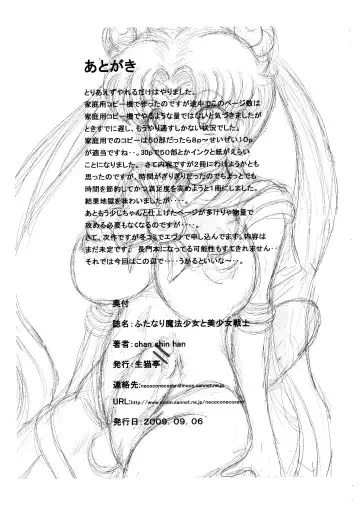 あとがき
とりあえずやれるだけはやりました。
家庭用コピー機で作ったのですが途中でこのページ数は
家庭用コピー機でやるような量ではないと気づきましたが
ときすでに遅し、もうやり通すしかない状況でした。
家庭用でのコピーは50部だったら8p～せいぜい10p
が適当ですね‥。30pで50部だとインクと紙がえらい
ことになりました。 さて内容ですが2冊にわけようかとも
思ったのですが、時間がぎりぎりだったのでちょっとでも
時間を節約してかつ満足度を高めようと1冊にしました。
結果地獄を味わいましたが‥‥。
あともう少しちゃんと仕上げたページが多けりゃ物量で
攻める必要もなくなるのですが‥‥。
さて、次作ですが冬コミでエヴァで申し込んでます。内容は
まだ未定です。 長門本になってる可能性もすてきれません‥
それでは今回はこの辺で‥‥うかるといいな～‥。
奥付
誌名：ふたなり魔法少女と美少女戦士
著者：chan shin han
発行：生猫亭
連絡先：necoconecosan@moon.sannet.ne.jp
URL：http://www.moon.sannet.ne.jp/necoconecosan/
発行日：2009. 09. 06